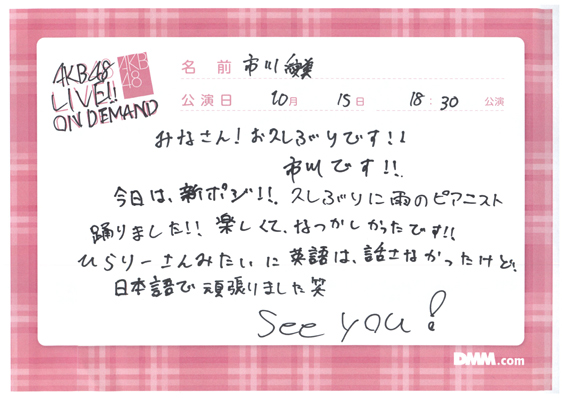 AKB48
LIVE!!
ON DEMAND
AKB
48
名 前 市川愛美
公演日 10月 15日 18:30 公演
みなさん!お久しぶりです!!
市川です!!
今日は、新ポジ!!. 久しぶりに雨のピアニスト
踊りました!! 楽しくて、なつかしかったです!!
ひらりーさんみたいに 英語は、話さなかったけど、
日本語で頑張りました笑
See you!
DMM.com